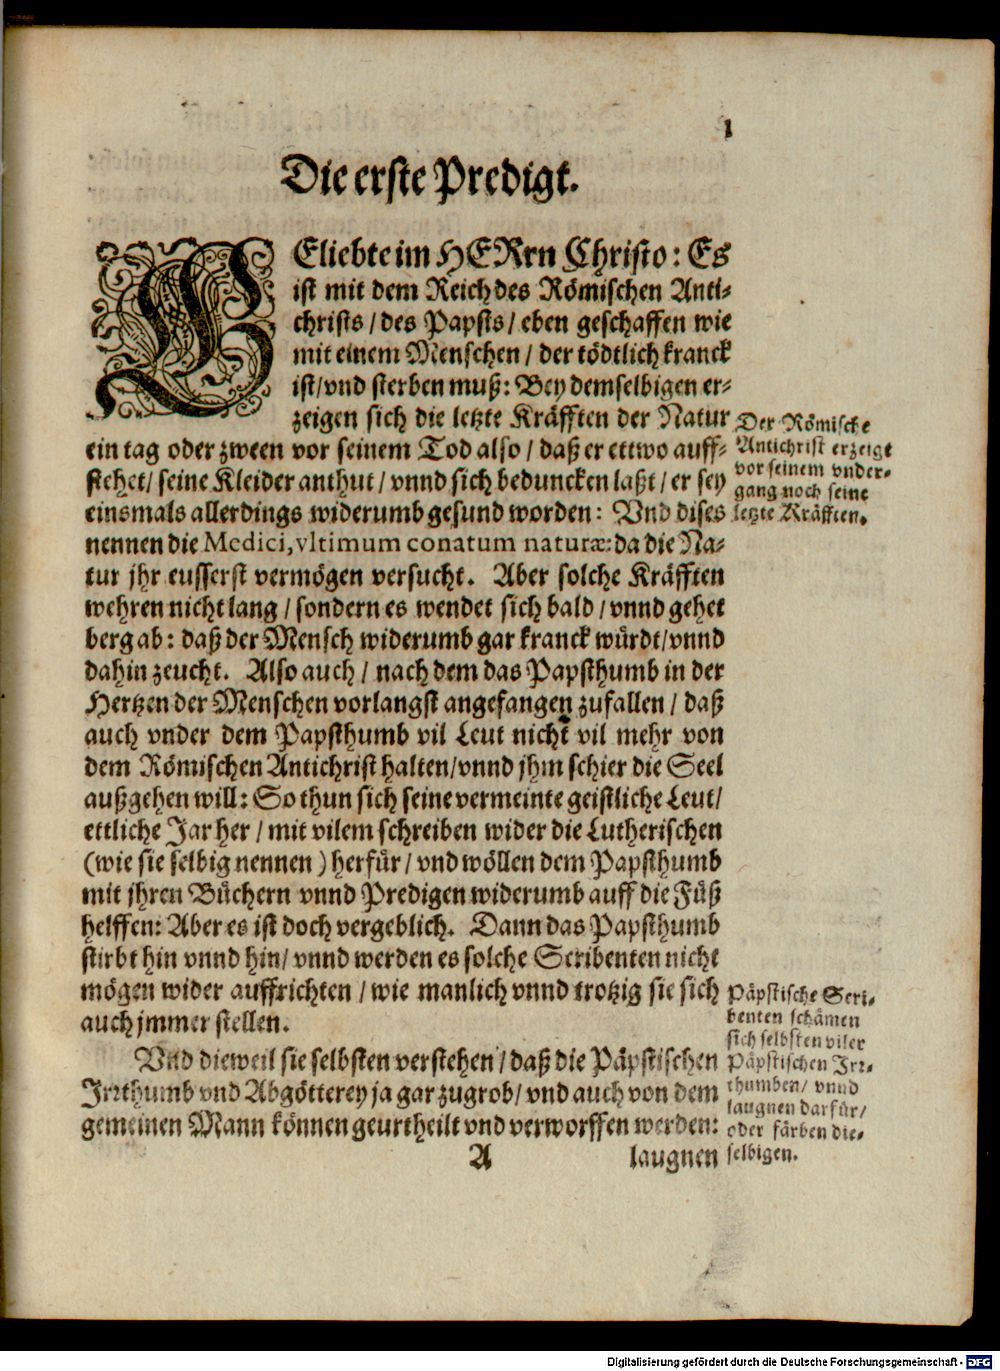 1
Die erste Predigt.
GEliebte im HERrn Christo: Es
ist mit dem Reich des Römischen Anti-
christs / des Papsts / eben geschaffen wie
mit einem Menschen / der tödtlich kranck
ist/vnd sterben muß: Bey demselbigen er-
zeigen sich die letzte Kräfften der Natur
ein tag oder zween vor seinem Tod also / daß er ettwo auff-
stehet/ seine Kleider anthut/ vnnd sich beduncken laßt/ er sey
einsmals allerdings widerumb gesund worden: Vnd dises
nennen die Medici, vltimum conatum naturæ: da die Na-
tur jhr eusserst vermögen versucht. Aber solche Kräfften
wehren nicht lang / sondern es wendet sich bald / vnnd gehet
berg ab: daß der Mensch widerumb gar kranck würdt/vnnd
dahin zeucht. Also auch / nach dem das Papsthumb in der
Hertzen der Menschen vorlangst angefangen zufallen / daß
auch vnder dem Papsthumb vil Leut nicht vil mehr von
dem Römischen Antichrist halten/vnnd jhm schier die Seel
außgehen will: So thun sich seine vermeinte geistliche Leut/
ettliche Jar her / mit vilem schreiben wider die Lutherischen
(wie sie selbig nennen) herfür / vnd wöllen dem Papsthumb
mit jhren Büchern vnnd Predigen widerumb auff die Füß
helffen: Aber es ist doch vergeblich. Dann das Papsthumb
stirbt hin vnnd hin/ vnnd werden es solche Scribenten nicht
mögen wider auffrichten / wie manlich vnnd trotzig sie sich
auch jmmer stellen.
Vnd dieweil sie selbsten verstehen/ daß die Päpstischen
Irrthumb vnd Abgötterey ja gar zugrob/ vnd auch von dem
gemeinen Mann können geurtheilt vnd verworffen werden:
A laugnen
Der Römische
Antichrist erzeigt
vor seinem vnder-
gang noch seine
letzte Kräfften.
Päpstische Scri-
benten schämen
sich selbsten viler
Päpstischen Irr-
thumben/ vnnd
laugnen darfür/
oder färben die-
selbigen.
Digitalisierung gefördert durch die Deutsche Forschungsgemeinschaft - DFG